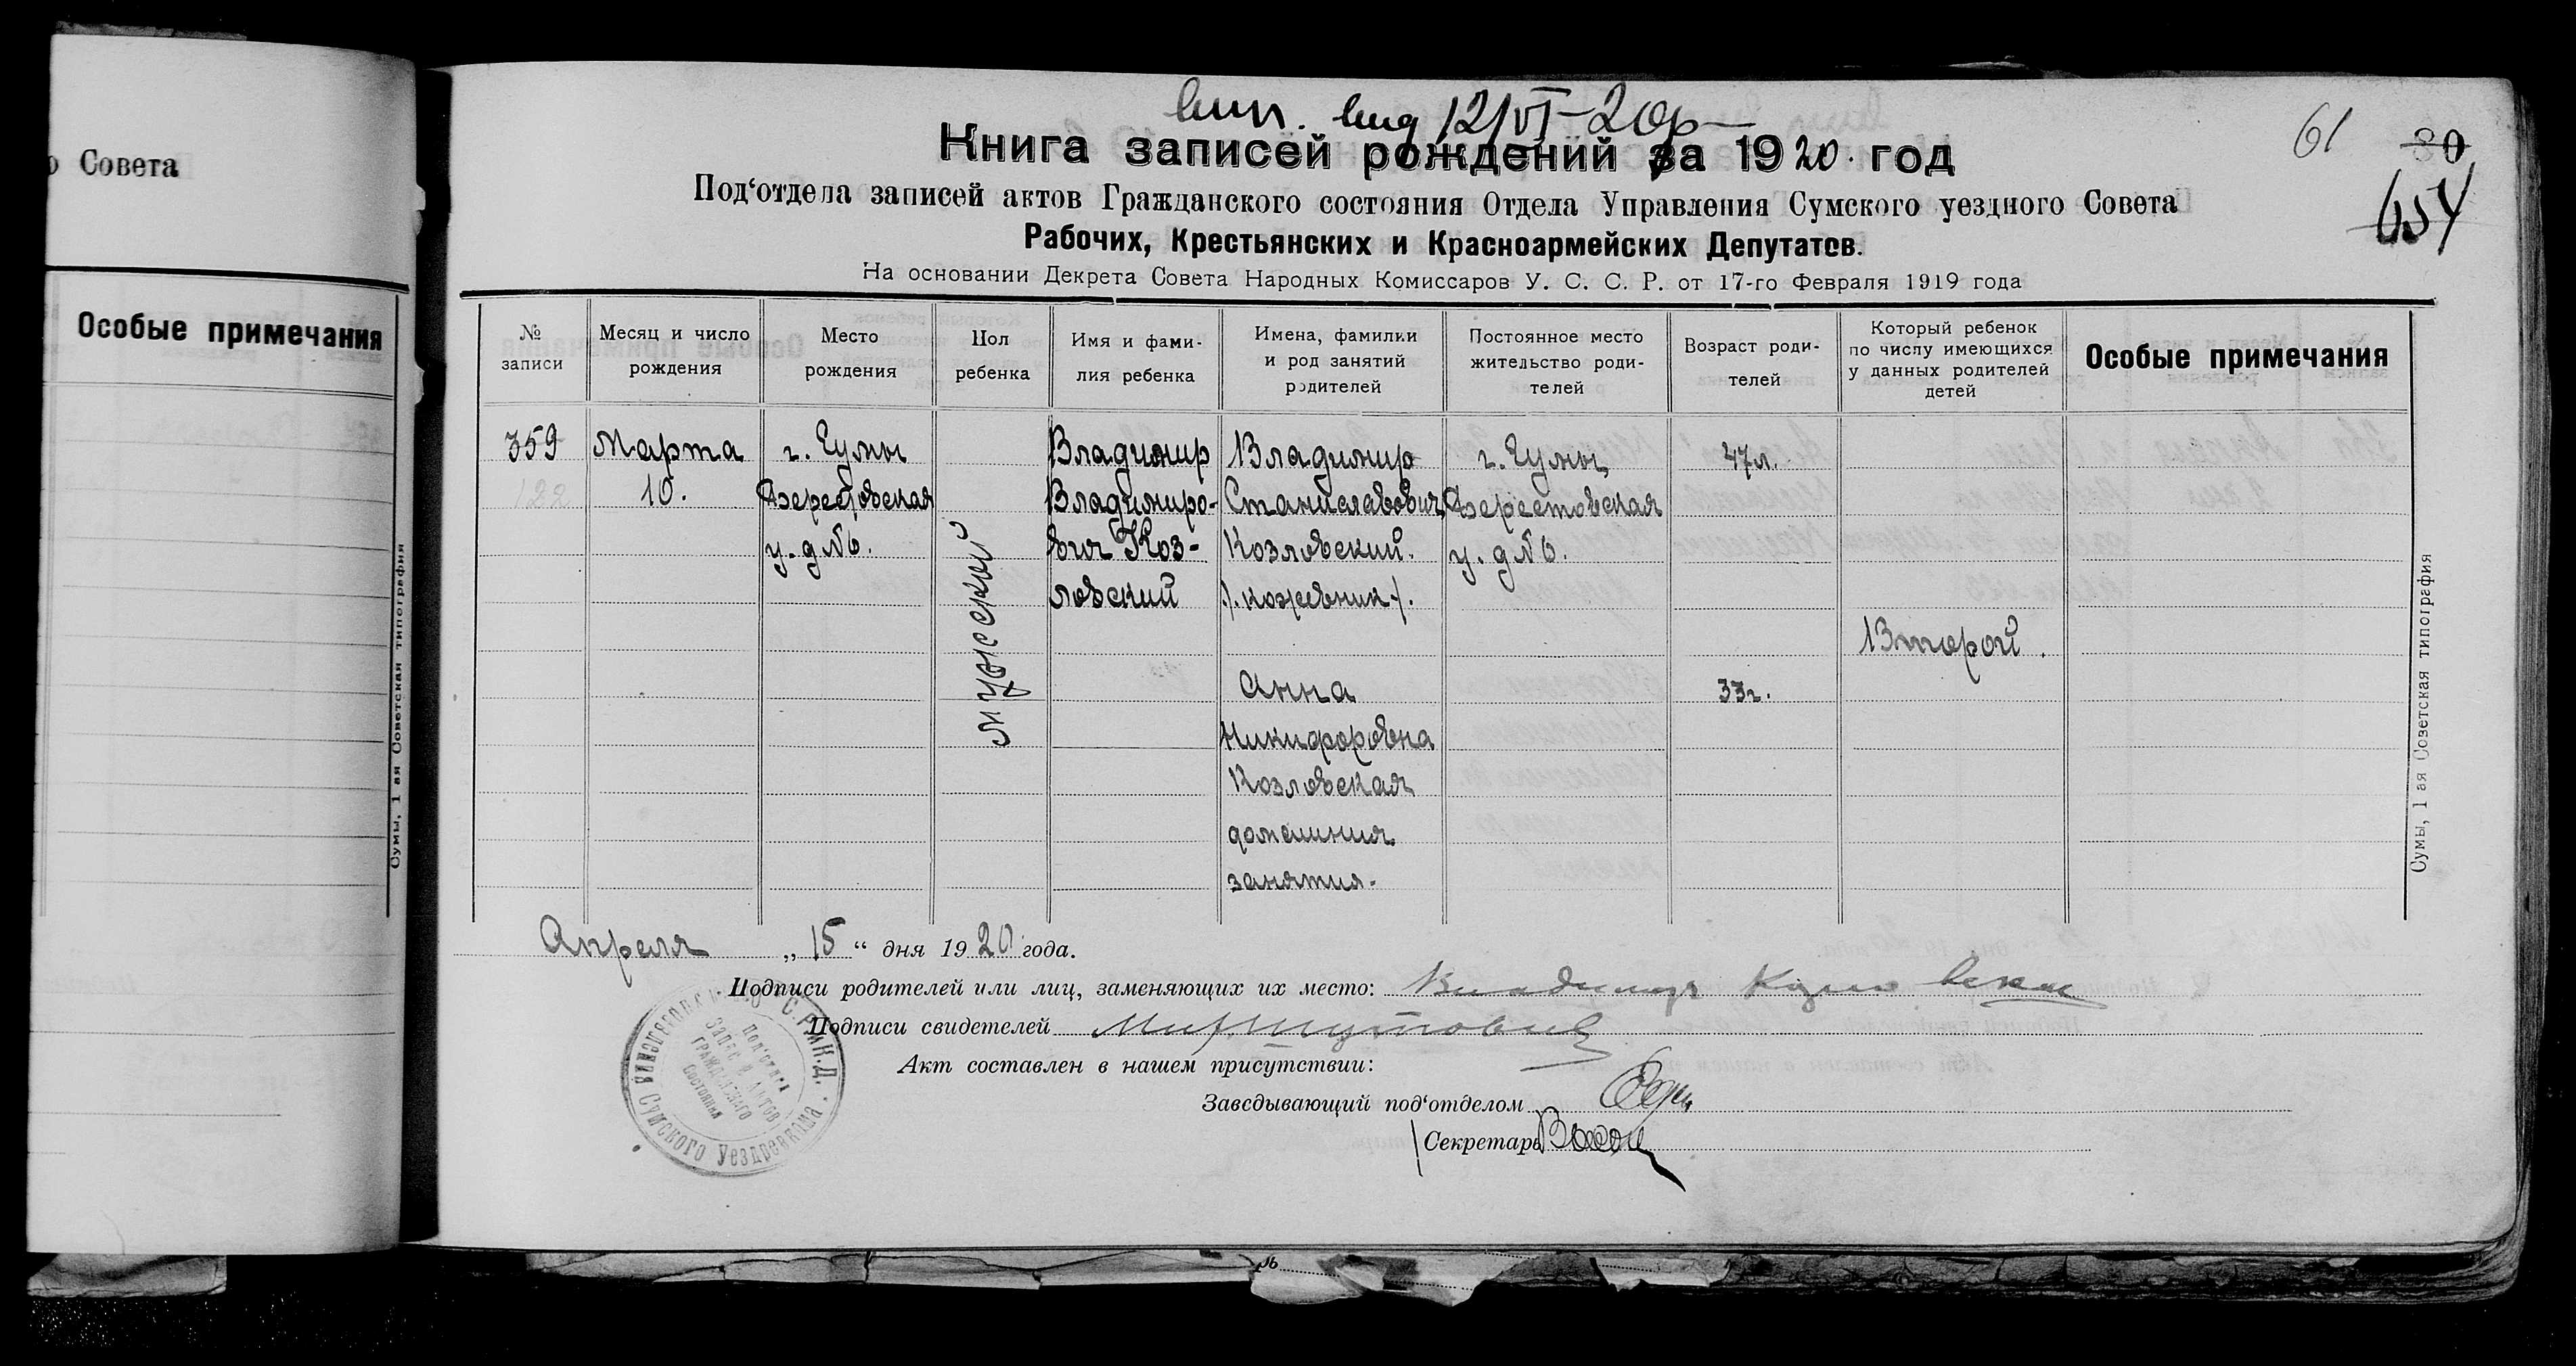 о Совета
Особые примечания
Сумы, 1 ая Советская типография
61
30
654
вып. вид 12/VI-20г
Книга записей рождений за 1920. год
Под‘отдела записей актов Гражданского состояния Отдела Управления Сумского уездного Совета
Рабочих, Крестьянских и Красноармейских Депутатов.
На основании Декрета Совета Народных Комиссаров У. С. С. Р. от 17-го Февраля 1919 года
№ записи
Месяц и число рождения
Место рождения
Пол ребенка
Имя и фами-
лия ребенка
Имена, фамилии
и род занятий
родителей
Постоянное место
жительство роди-
телей
Возраст роди-
телей
Который ребенок
по числу имеющихся
у данных родителей
детей
Особые примечания
359
122
Марта
10.
г. Сумы
у. д №6.
мужской
Владимир
Владимиро-
вич Коз-
ловский
Владимир
Станиславович
Козловский.
/. кожевник /.
Анна
Никифоровна
Козловская
домашния
занятия.
г. Сумы,
у. д №6.
47л.
33г.
Второй.
Сумы, 1 ая Советская типография
Апреля „ 15 “ дня 1920 года.
Подписи родителей или лиц, заменяющих их место: Владимир Козловский
Подписи свидетелей
Акт составлен в нашем присутствии:
Заведывающий под‘отделом
Секретарь
Сумского Уездревкома
Под'отдела
Записи Актов
Гражданского
Состояния